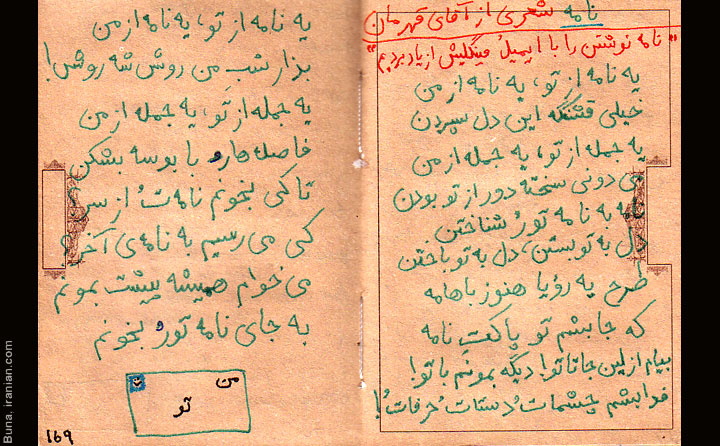 نامه شعری از آقای قهرمان
"نامه نوشتن را با ایمیل فینگلیش از یاد بردیم"
یه نامه از تو، یه نامه از من
خیلی قشنگه این دل سپردن
یه جمله از تو، یه جمله از من
می دونی سخته دور از تو بودن
نامه به نامه تورُ شناختن
دل به تو بستن، دل به تو باختن
طرح یه رؤیا هنوز باهامه
که جا بشم تو پاکتِ نامه
بیام از این جا تا تو! دیگه بمونم با تو!
فدا بشم چشمات دستات حرفات!
یه نامه از تو، یه نامه از من
بذار شبِ من روشن شه روشن!
یه جمله از تو، یه جمله از من
فاصله هارو با بوسه بشکن
تا کی بخونم نامه تُ از سر
کی می رسیم به نامه ی آخر؟
می خوام همیشه پیشت بمونم
به جای نامه تورُ بخونم
من
تو
169
Buna, iranian.com